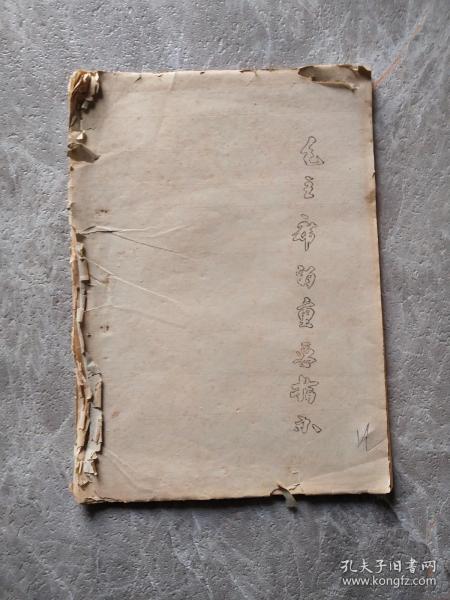 毛主席的重要指示
孔夫子旧书网
www.kongfz.com